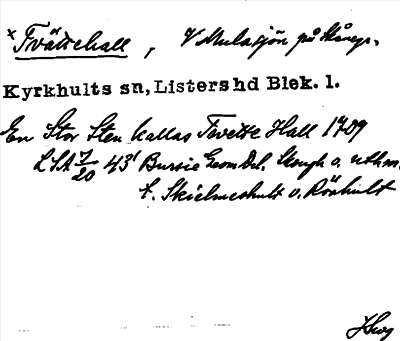 x Tvättehall, V Mulasjön på Skånegr.
Kyrkhults sn, Listershd Blek. l.
En Stor Sten kallas Tvette Hall 1709
LSA 7/20 43¹ Bursie Geom Del. Skough o. uthm.
t. Skielmershult o. Rönhult